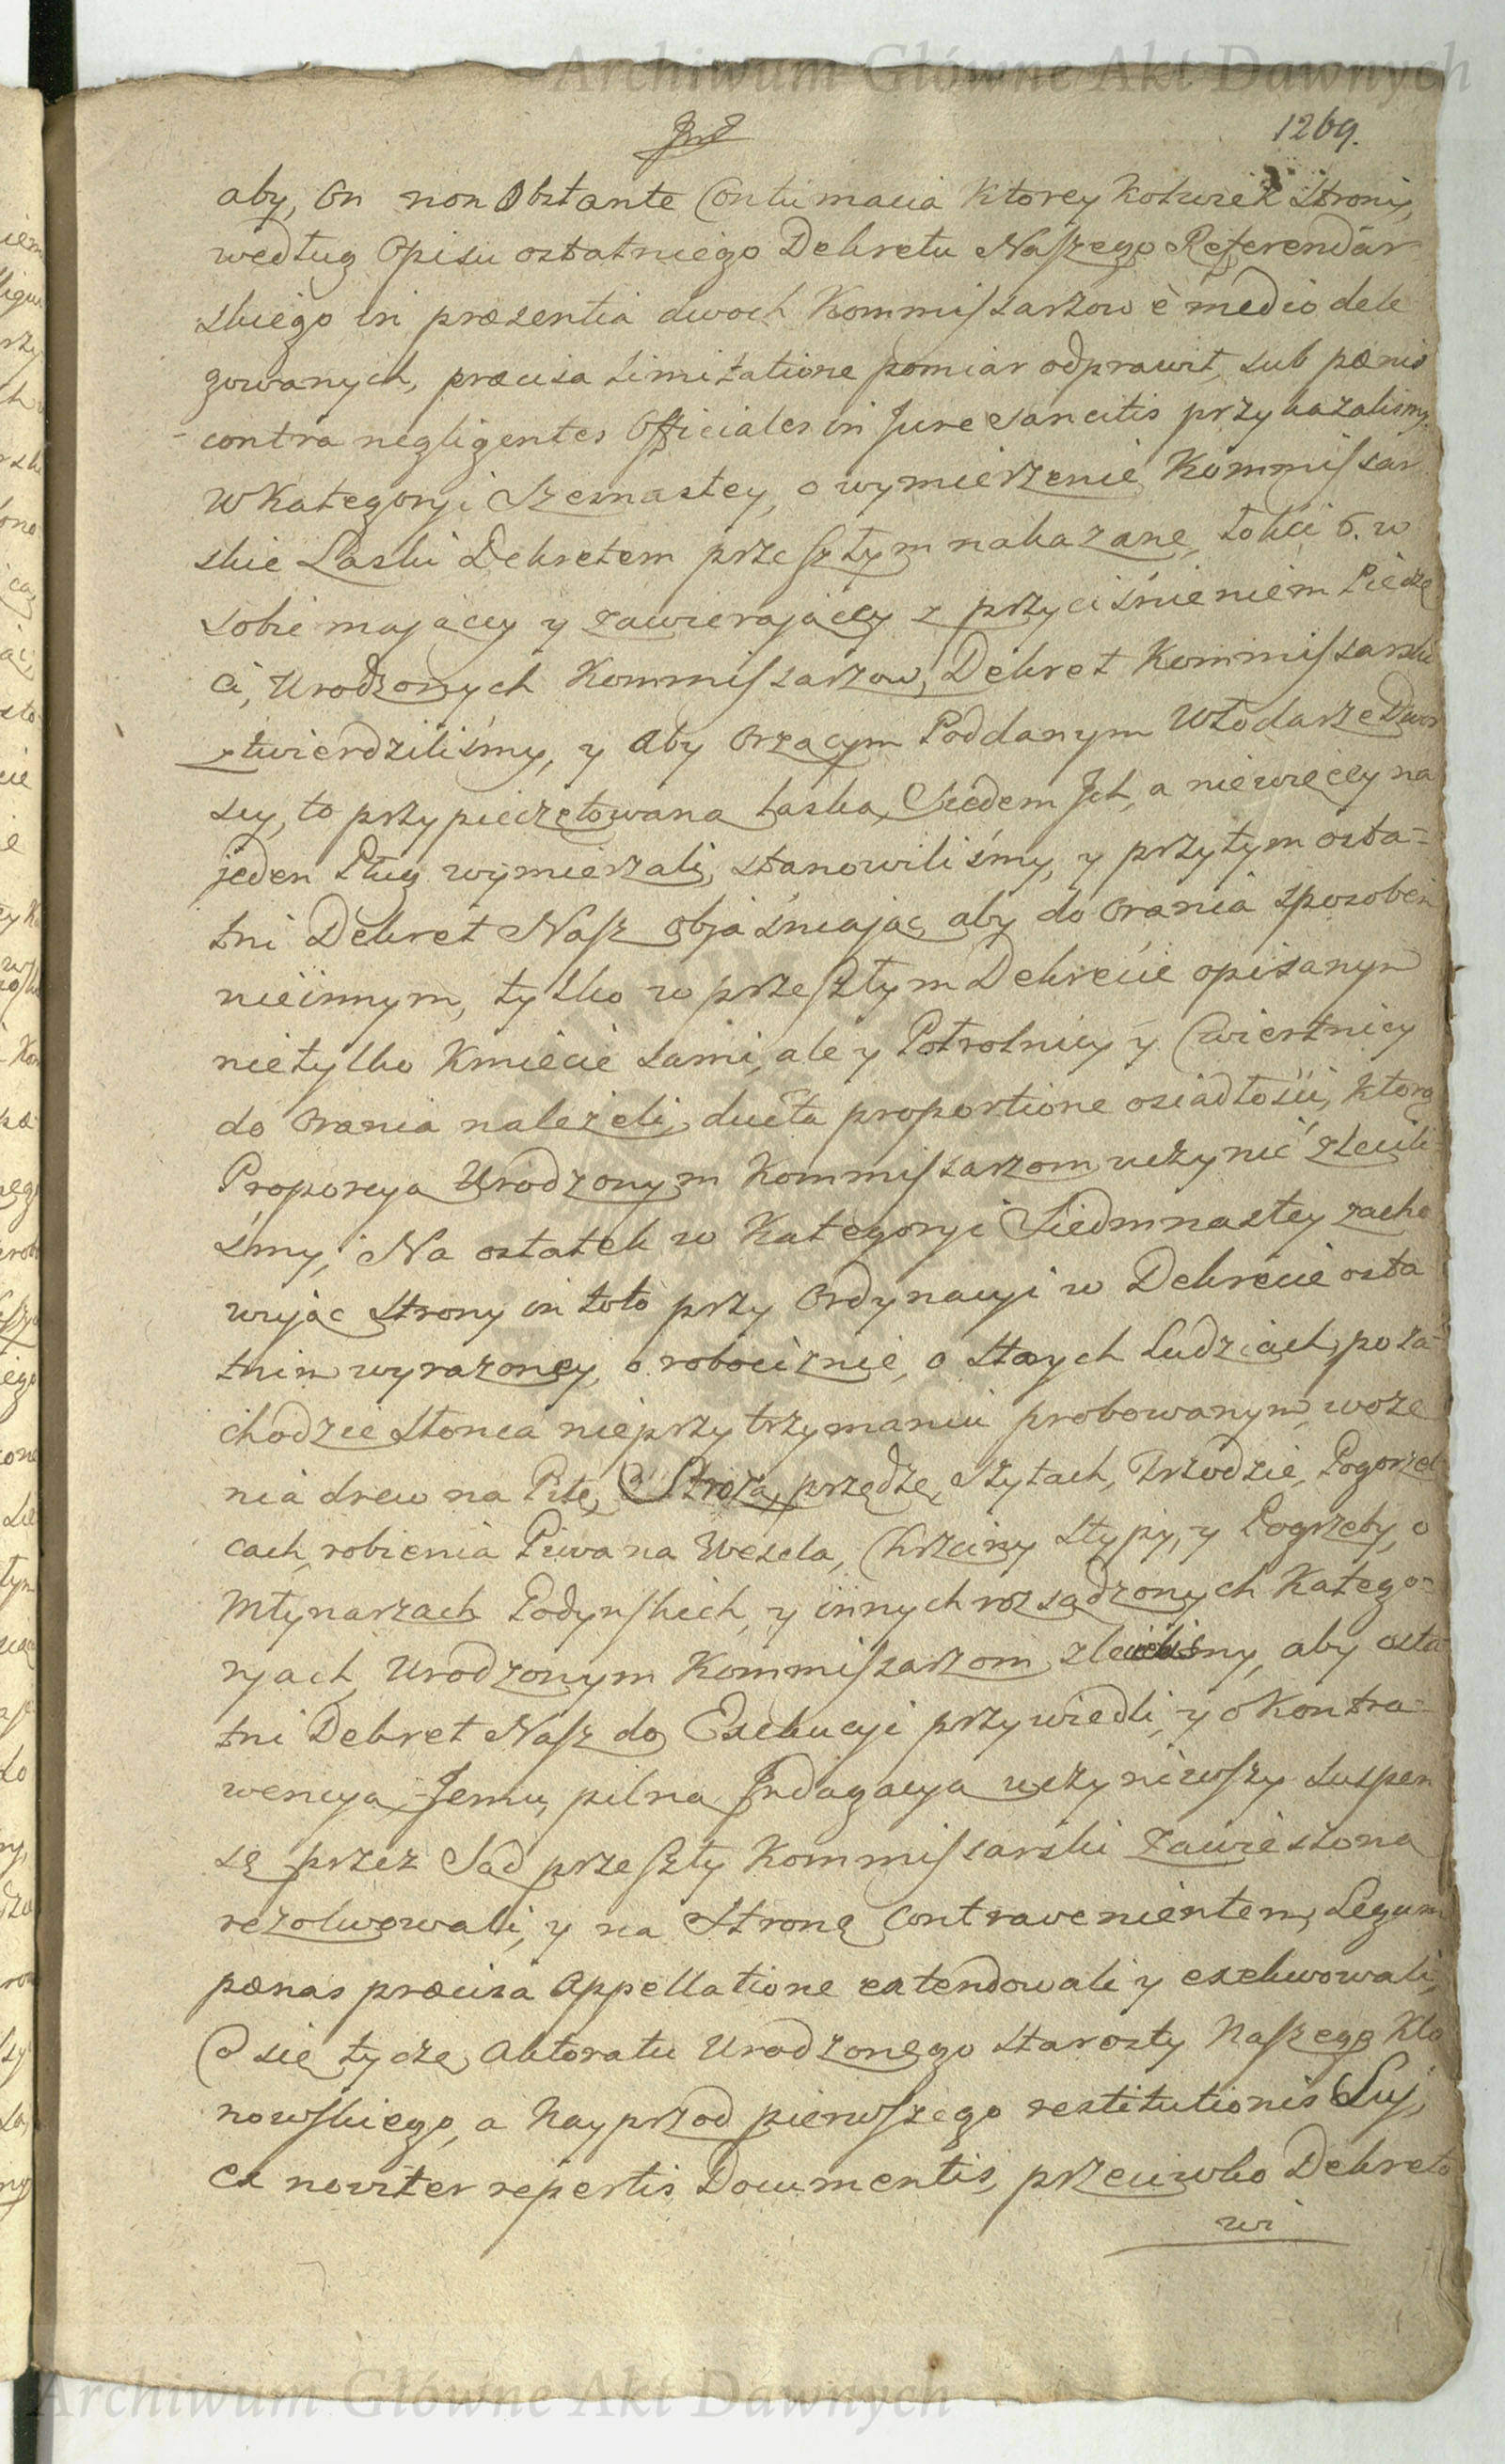 Archiwum Główne Akt Dawnych
1269.
aby, on non Obstante Contumacia Ktorey Kolwiek Strony,
według Opisu ostatniego Dekretu Naszego Referendar
skiego in præsentia dwoch Kommissarzow è medio dele
gowanych, præcisa limitatione pomiar odprawił, sub pænis
contra negligentes Officiales in Jure sancitis przykazalismy.
W Kategoryi Szesnastey, o wymierzenie Kommissar
skie Laski Dekretem przeszłym nakazane, łokci 6. w
sobie maiący y zawieraiący z przyciśnieniem Pieczę
ci, Urodzonych Kommissarzow, Dekret Kommissarski
ztwierdziliśmy, y aby Orzącym Poddanym Włodarze Dwor
scy, to przypieczętowana laska, Siedem Jch, a niewięcey na
jeden Pług wymierzali, stanowiliśmy, y przytym osta-
tni Dekret Nasz objaśniając, aby do Orania sposobem
nieinnym, tylko w przeszłym Dekrecie opisanym
nietylko Kmiecie sami, ale y Połrolnicy y Cwiertnicy
do Orania należeli, ducta proportione osiadłości, ktorą
Proporcyą Urodzonym Kommissarzom uczynić zlecili-
śmy; Na ostatek w Kategoryi Siedmnastey zacho
wując Strony in toto przy Ordynacyi w Dekrecie osta
tnim wyrażoney, o robociznie, o Starych Ludziach, po za-
chodzie Słonca nieprzytrzymaniu probowanym, woże
nia drew na Piłę, O Stroża, przędzę, Szytach, Trzodzie, Pogorzel
cach, robienia Piwa na Wesela, Chrzciny Stypy, y Pogrzeby, o
Młynarzach Podyńskich, y innych rozsądzonych Katego-
ryach, Urodzonym Kommissarzom zlecilismy, aby osta
tni Dekret Nasz do Exekucyi przywiedli, y o Kontra-
wencyą Jemu, pilną Jndagacyą uczyniwszy suspen
sę przez Sąd przeszły Kommissarski zawieszoną
rezolwowali, y na Stronę Contravenientem, Legum
pænas præcisa Appellatione extendowali y exekwowali,
Co się tycze, Aktoratu Urodzonego Starosty Naszego Kło
nowskiego, a Nayprzod pierwszego restitutionis Suj,
ex noviter repertis Documentis, przeciwko Dekreto
wi
Archiwum Główne Akt Dawnych